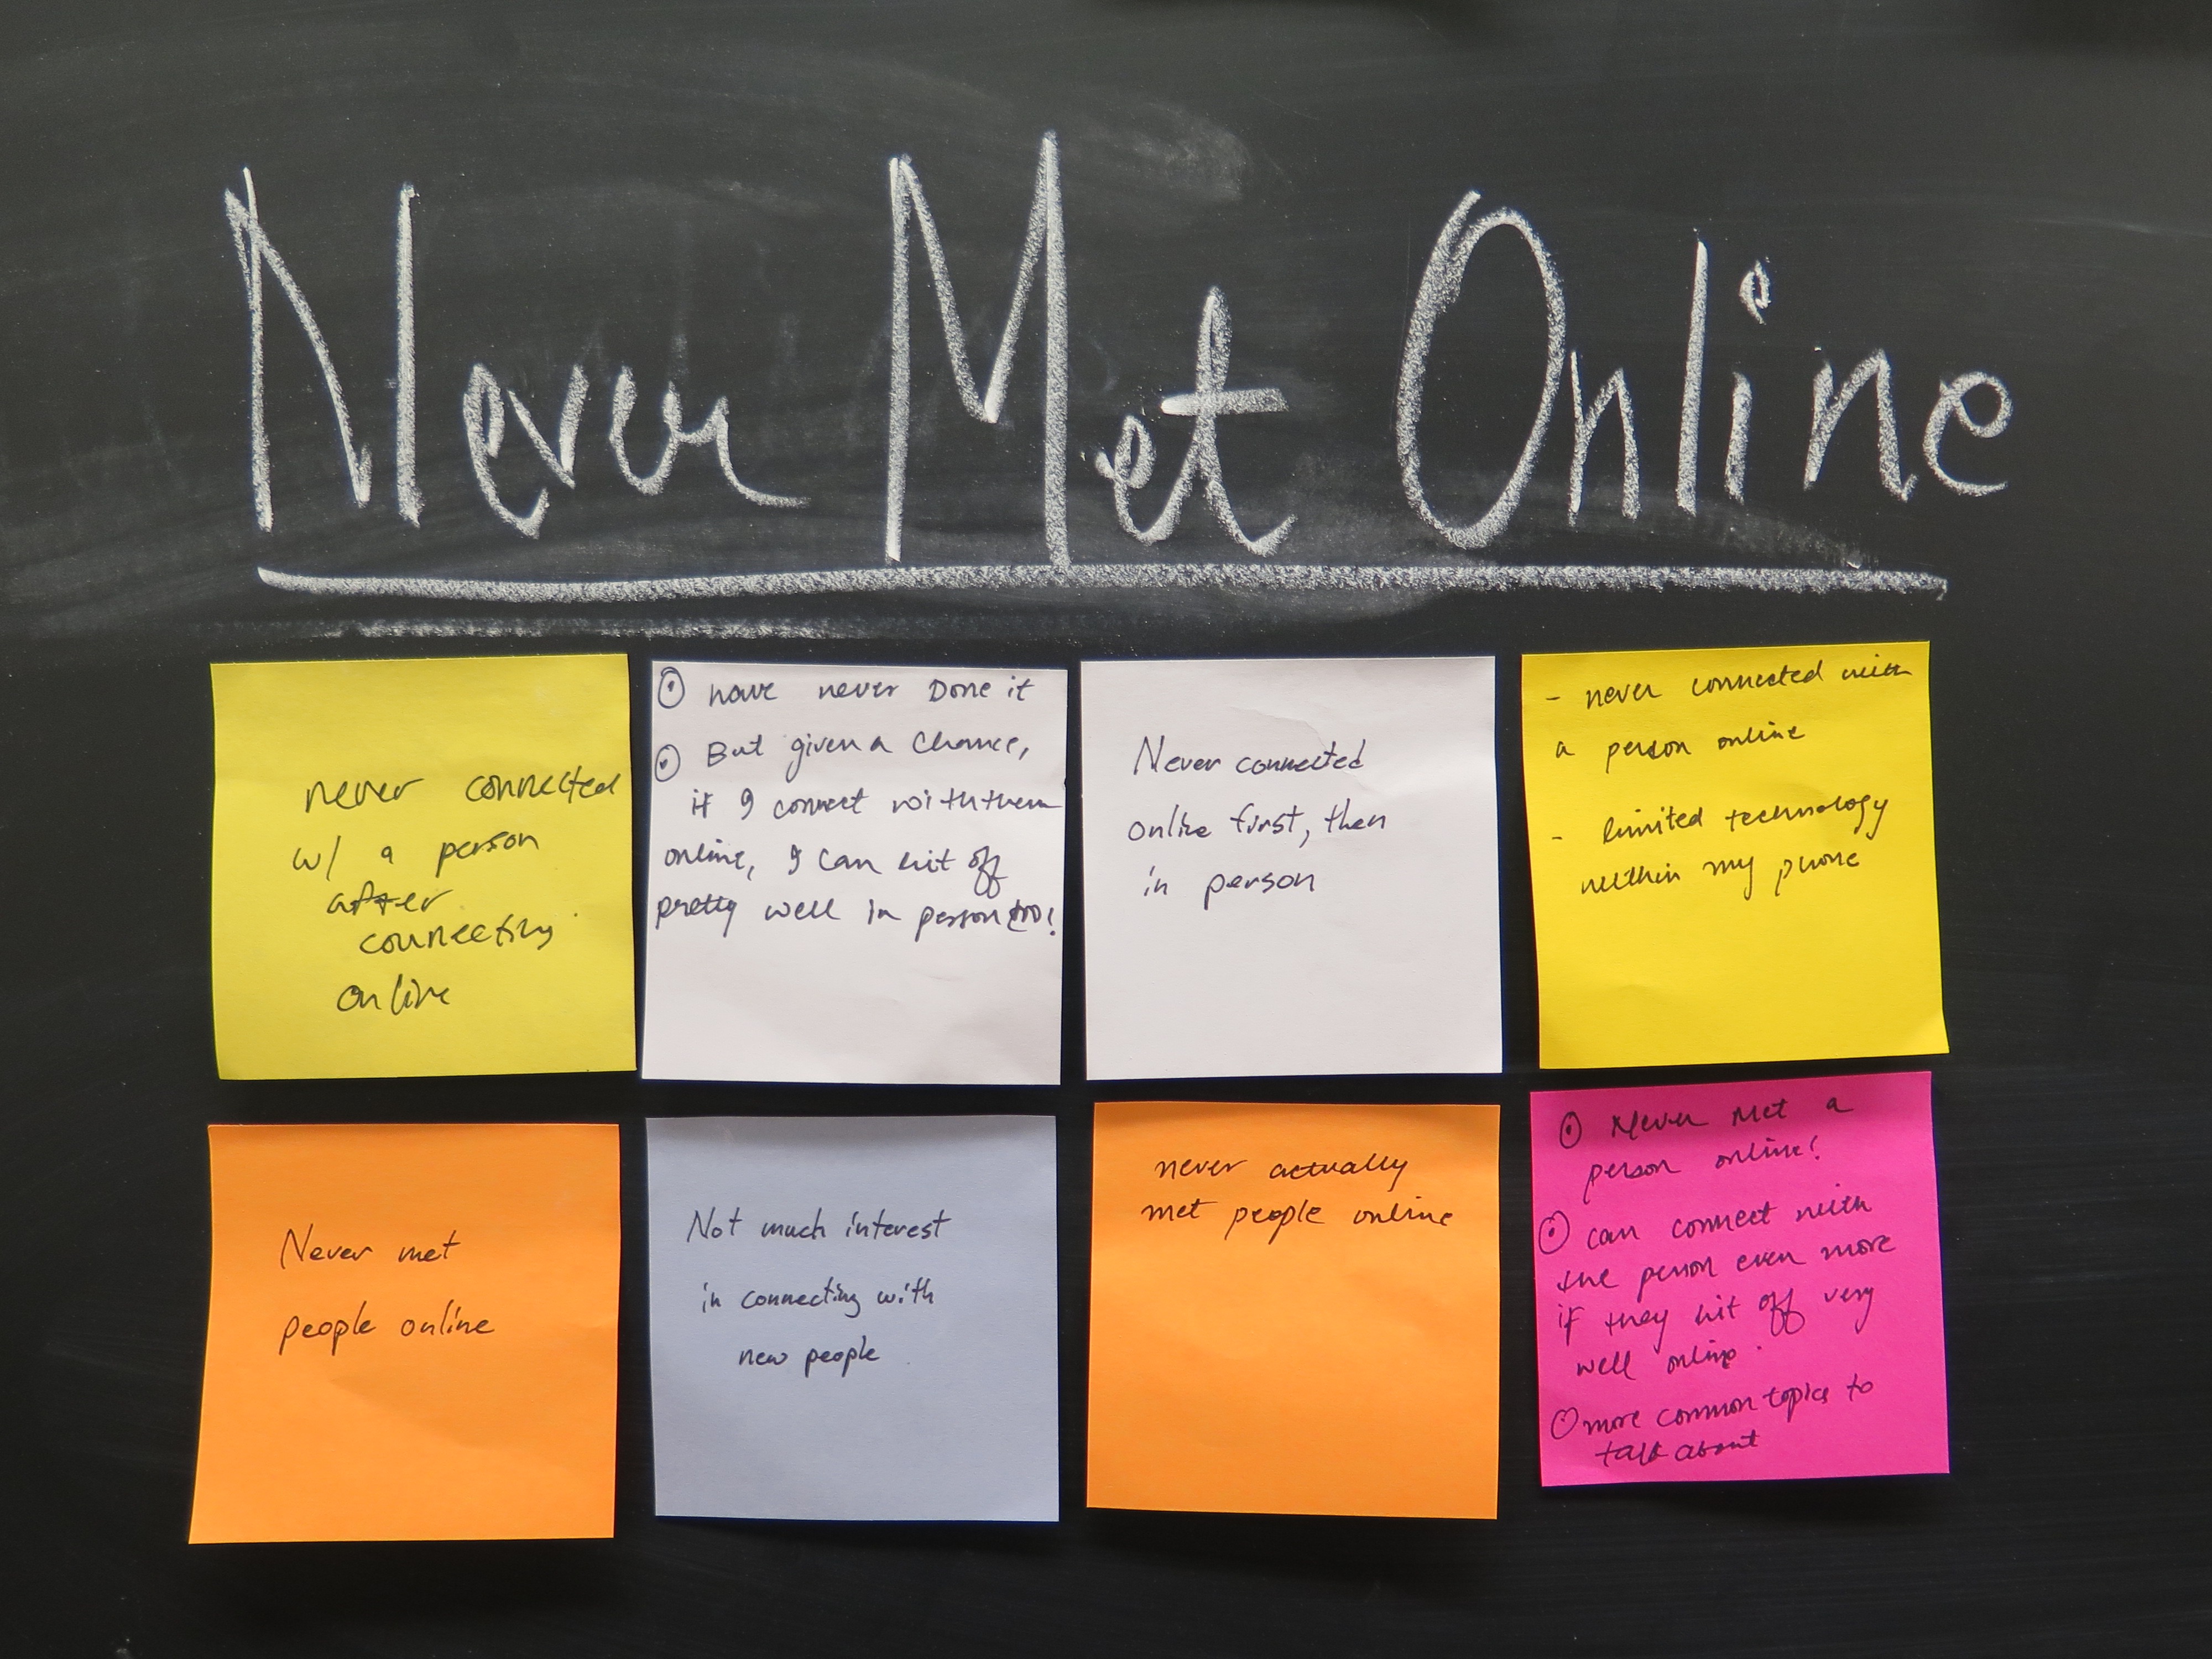 Never Met Online
never connected
w/ a person
after
connecting
online
have never Done it
But given a chance,
if I connect with them
online, I can hit off
pretty well in person too!
Never connected
online first, then
in person
- never connected with
a person online
- limited technology
within my phone
Never met
people online
Not much interest
in connecting with
new people
never actually
met people online
Never Met a
person online!
can connect with
the person even more
if they hit off very
well online.
more common topics to
talk about